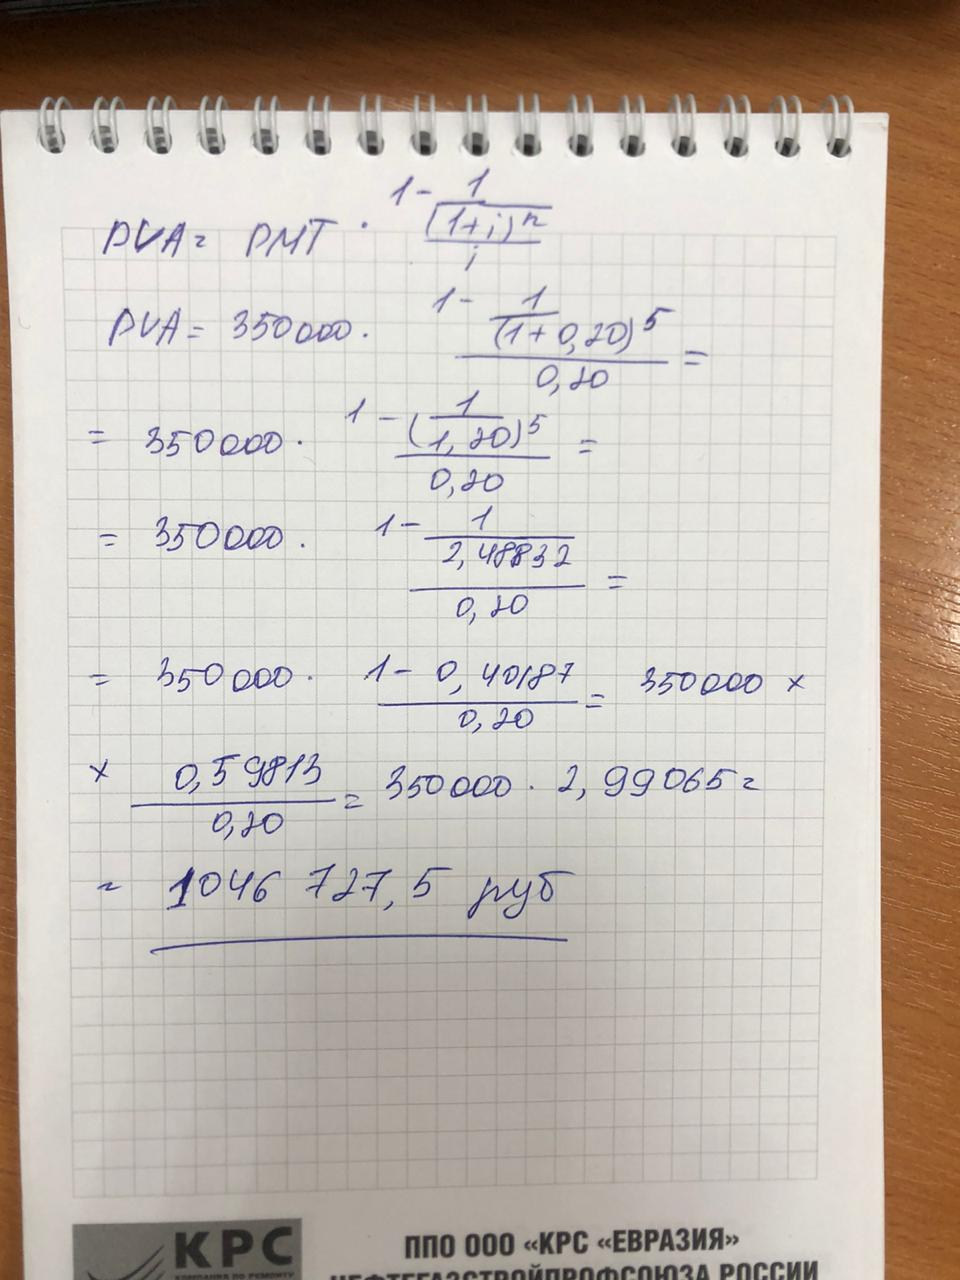 PVA = PMT · (1 - 1/(1+i)^n)/i
PVA = 350000 · (1 - 1/(1+0,20)^5)/0,20 =
= 350000 · (1 - (1/1,20)^5)/0,20 =
= 350000 · (1 - 1/2,48832)/0,20 =
= 350000 · (1 - 0,40187)/0,20 = 350000 ×
× 0,59813/0,20 = 350000 · 2,99065 =
= 1046 727,5 руб
КРС
ППО ООО «КРС «ЕВРАЗИЯ»
НЕФТЕГАЗСТРОЙПРОФСОЮЗА РОССИИ